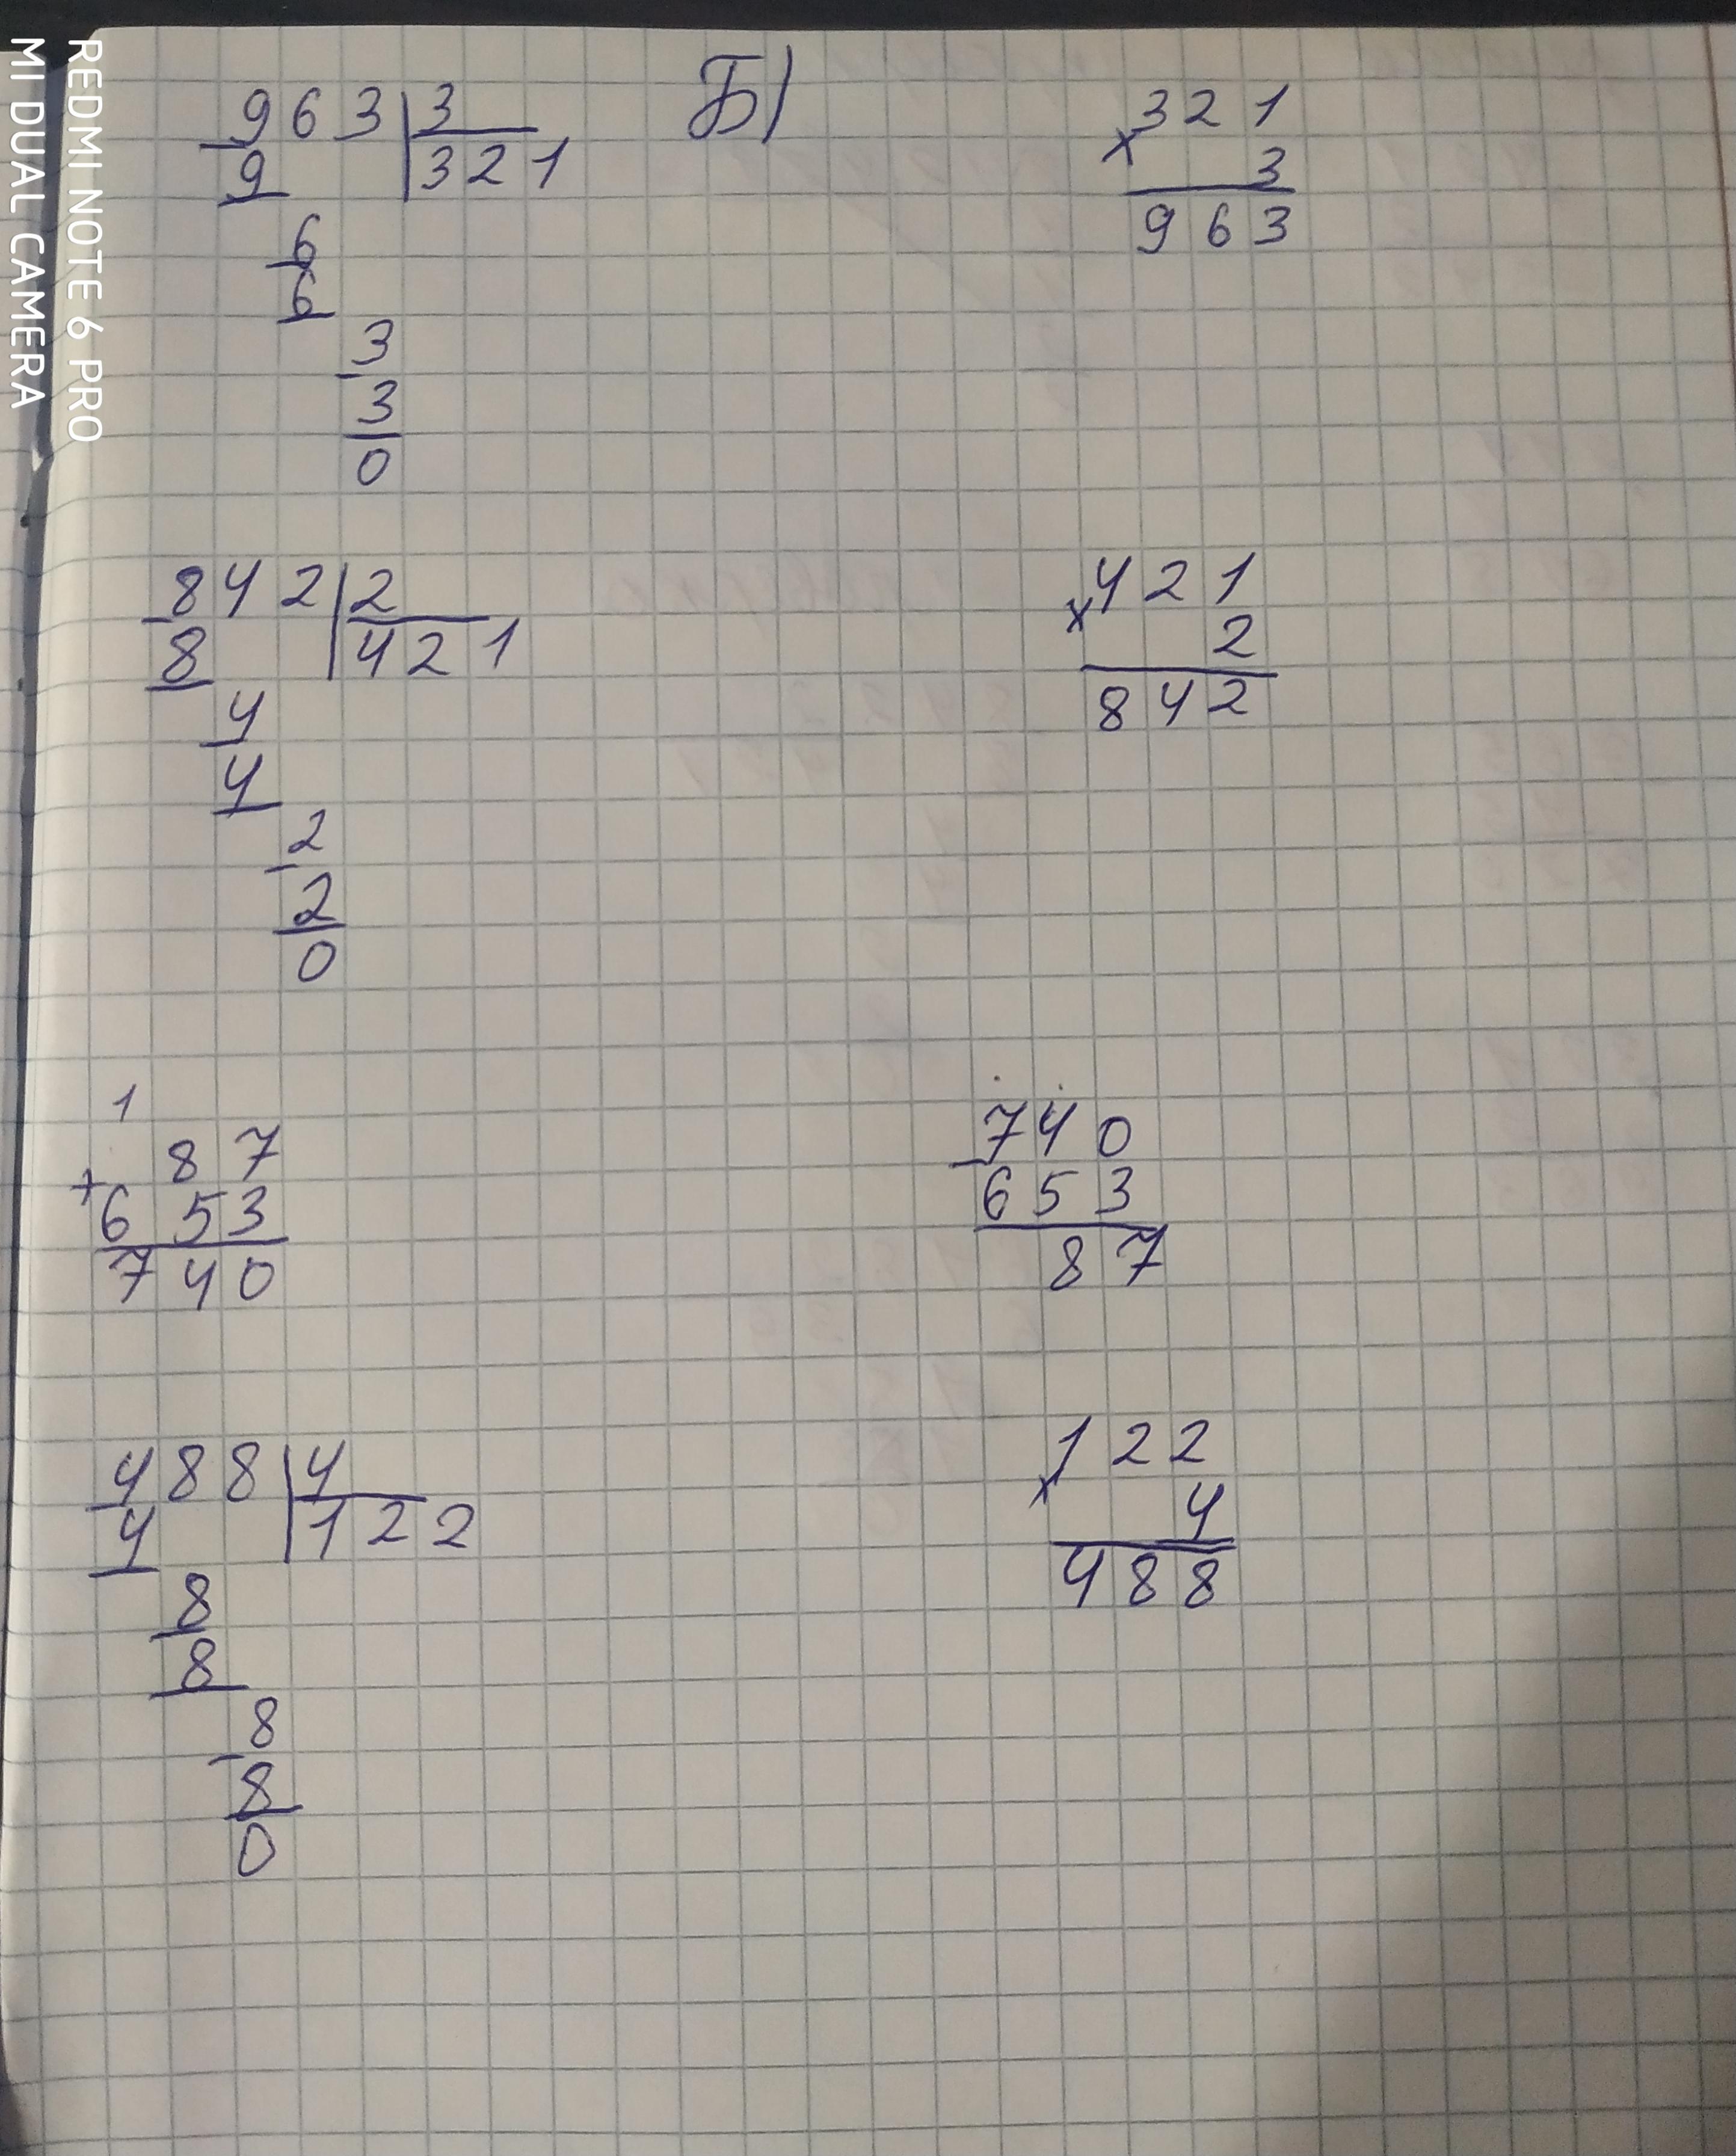 Б)
963 | 3
9 | 321
6
6
3
3
0
321
× 3
963
842 | 2
8 | 421
4
4
2
2
0
421
× 2
842
1
87
+ 653
740
740
- 653
87
488 | 4
4 | 122
8
8
8
8
0
122
× 4
488
REDMI NOTE 6 PRO
MI DUAL CAMERA